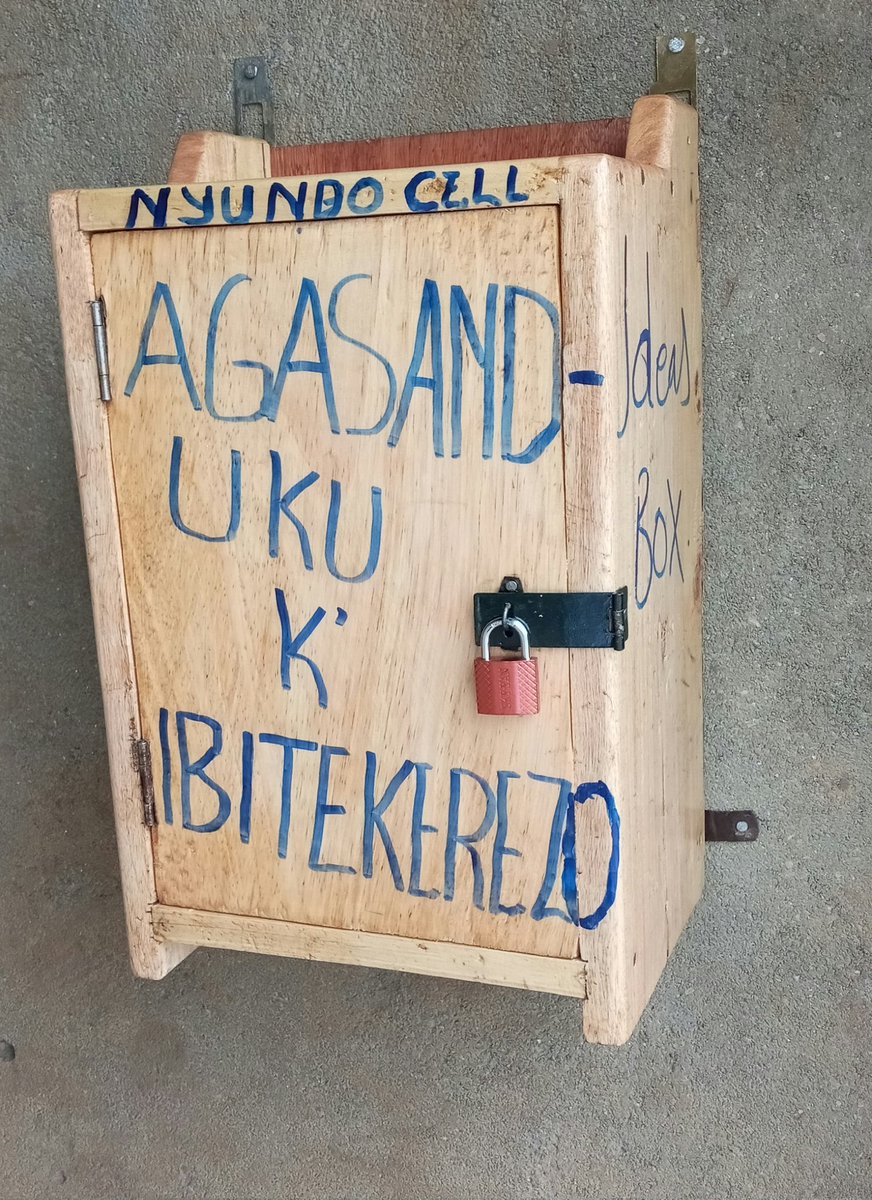 NYUNDO CELL
AGASAND-
UKU
K'
IBITEKEREZO
Ideas
Box